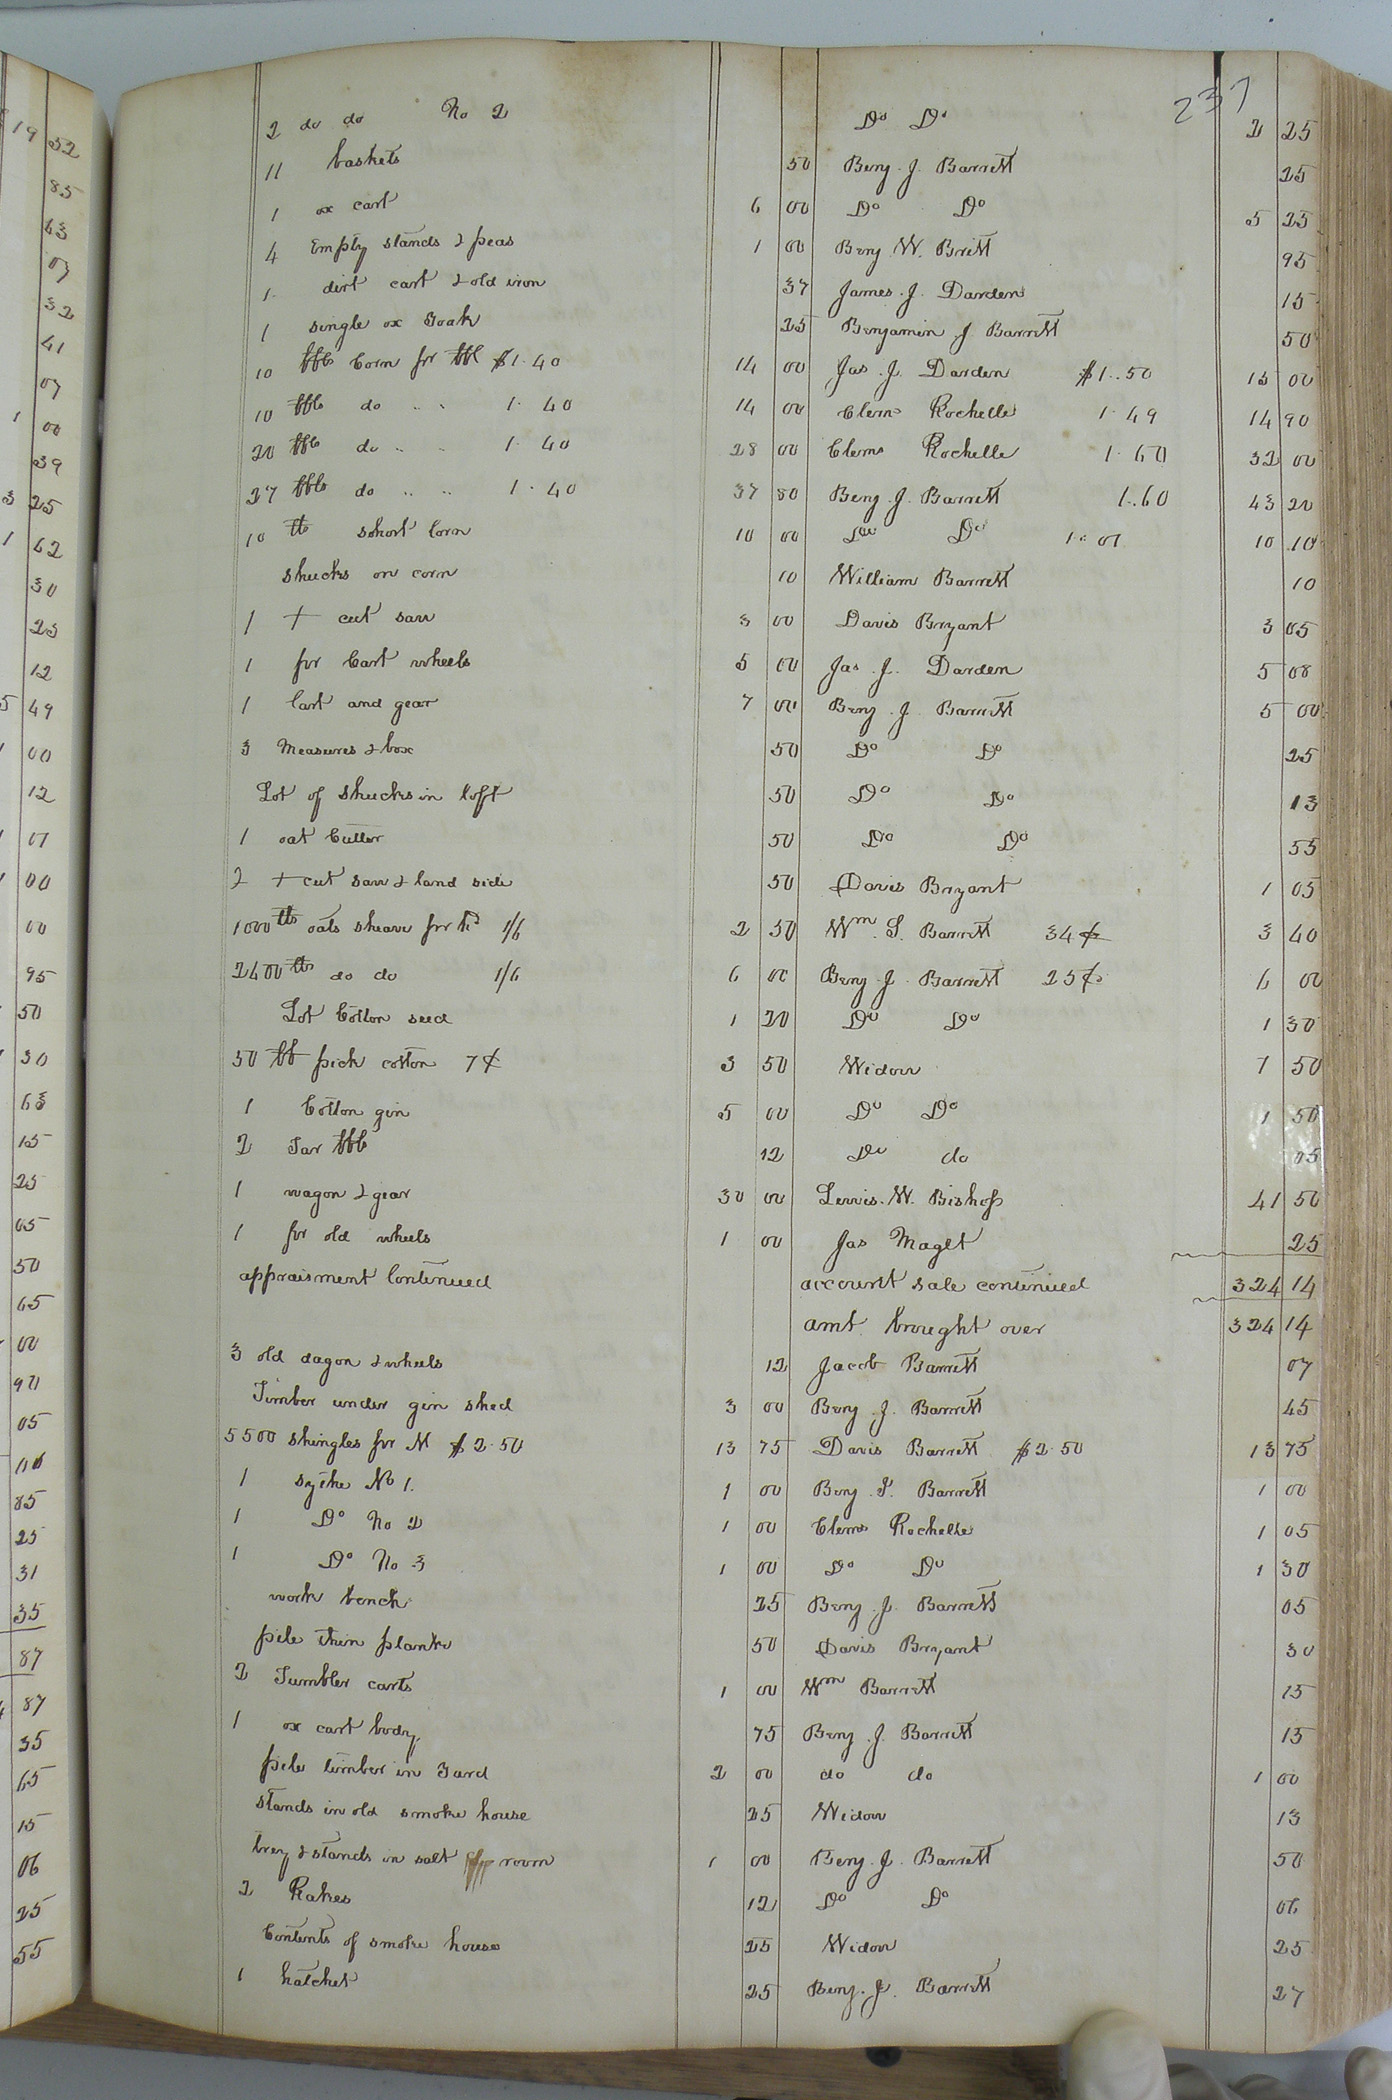 237
2 do do No 2 Do Do 2 25
11 baskets 50 Benj. J. Barrett 25
1 ox cart 6 00 Do Do 5 25
4 Empty stands & peas 1 00 Benj W. Britt 95
1 dirt cart & old iron 37 James. J. Darden 15
1 single ox Yoak 25 Benjamin J Barrett 50
10 bbls Corn pr bbl $1.40 14 00 Jas. J. Darden $1..50 15 00
10 bbls do " " 1.40 14 00 Clems Rochelle 1.49 14 90
20 bbls do " " 1.40 28 00 Clems Rochelle 1.60 32 00
27 bbls do " " 1.40 37 80 Benj. J. Barrett 1..60 43 20
10 short Corn 10 00 Do Do 1.01 10 10
shucks on corn 10 William Barrett 10
1 + cut saw 3 00 Davis Bryant 3 05
1 pr Cart wheels 5 00 Jas. J. Darden 5 08
1 Cart and gear 7 00 Benj. J. Barrett 5 00
3 Measures & box 50 Do Do 25
Lot of shucks in loft 50 Do Do 13
1 oat Cutter 50 Do Do 55
2 + cut saw & land side 50 Davis Bryant 1 05
1000 lbs oats sheave pr hd 1/6 2 50 Wm. S. Barrett 34¢ 3 40
2400 lbs do do 1/6 6 00 Benj. J. Barrett 25¢ 6 00
Lot Cotton seed 1 20 Do Do 1 30
50 lb pick cotton 7¢ 3 50 Widow 7 50
1 Cotton gin 5 00 Do Do 1 50
2 Tar bbls 12 Do do 05
1 wagon & gear 30 00 Lewis. W. Bishop 41 50
1 pr old wheels 1 00 Jas Maget 25
appraisment Continued account sale continued 324 14
amt brought over 324 14
3 old dagon & wheels 12 Jacob Barrett 07
Timber under gin shed 3 00 Benj. J. Barrett 45
5500 shingles pr M $2.50 13 75 Davis Barrett $2.50 13 75
1 sythe No 1. 1 00 Benj. J. Barrett 1 00
1 Do No 2 1 00 Clems Rochelle 1 05
1 Do No 3 1 00 Do Do 1 30
work bench 25 Benj. J. Barrett 05
pile thin plank 50 Davis Bryant 30
2 Tumbler carts 1 00 Wm Barrett 15
1 ox cart body 75 Benj. J. Barrett 15
pile timber in Yard 2 00 do do 1 00
stands in old smoke house 25 Widow 13
trey & stands in salt room 1 00 Benj. J. Barrett 50
2 Rakes 12 Do Do 06
Contents of smoke house 25 Widow 25
1 hatchet 25 Benj. J. Barrett 27